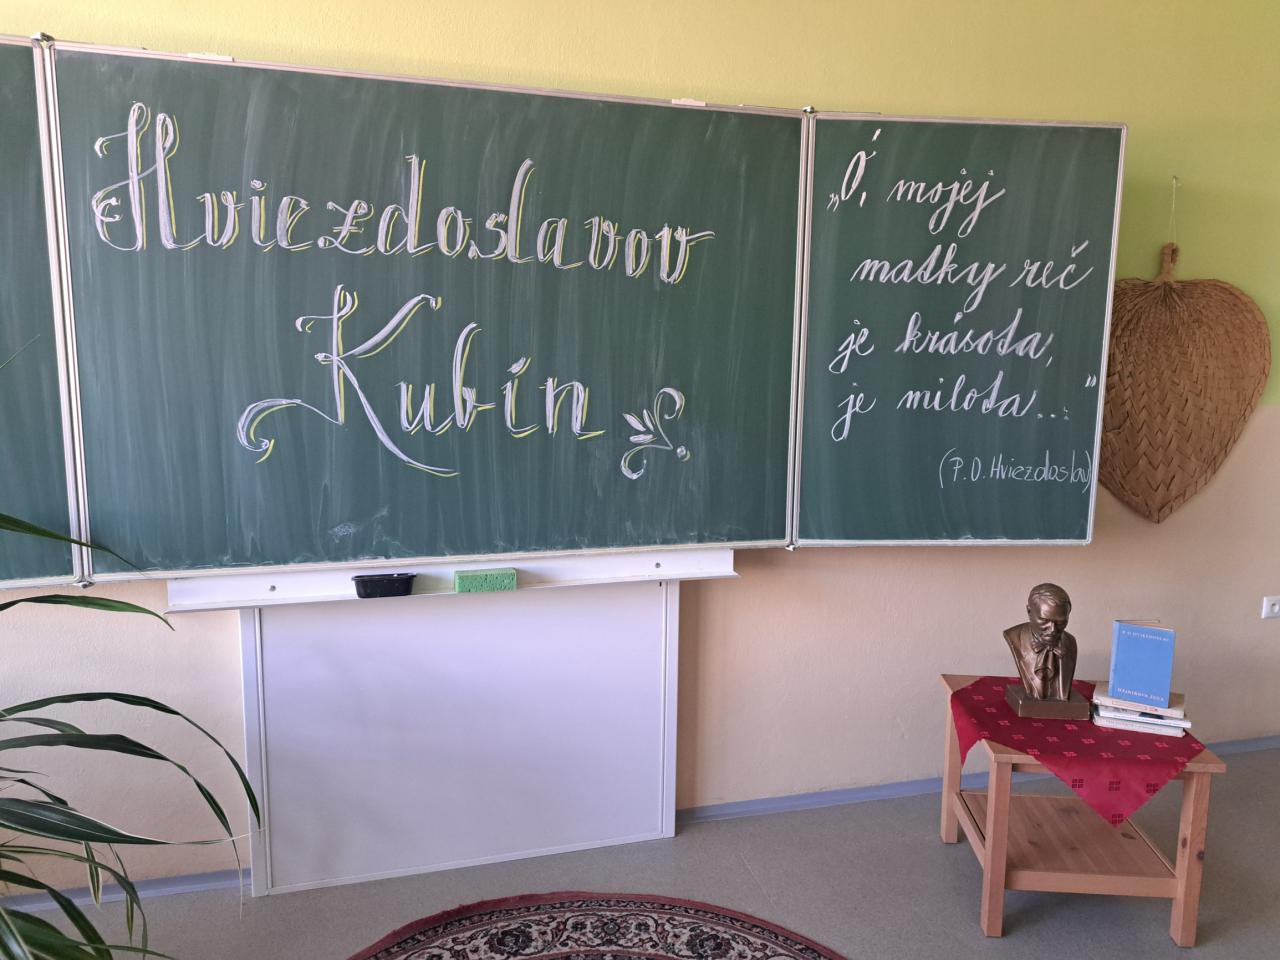 Hviezdoslavov
Kubín
„Ó, mojej
matky reč
je krásota,
je milota..."
(P.O. Hviezdoslav)
P. O. HVIEZDOSLAV
HÁJNIKOVA ŽENA